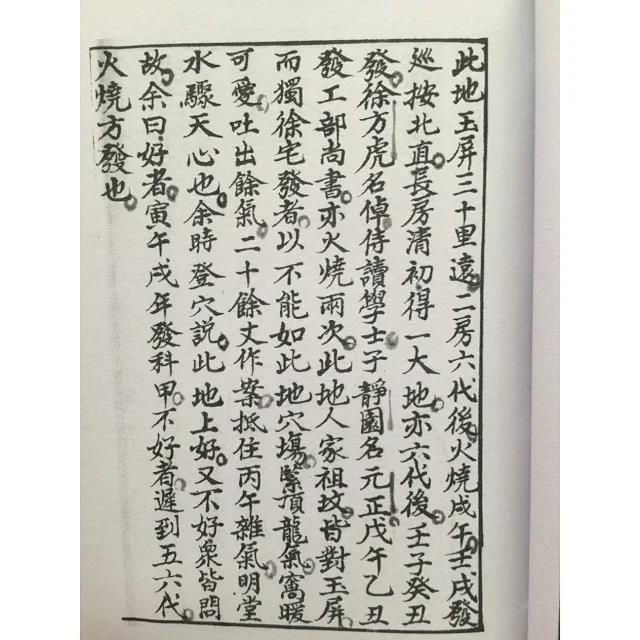 此地玉屏三十里遠二房六代後火燒戌午壬戌發
巡按北直長房清初得一大地亦六代後壬子癸丑
發徐方虎名倬侍讀學士子靜園名元正戊午乙丑
發工部尚書亦火燒兩次此地人家祖墳皆對玉屏
而獨徐宅發者以不能如此地穴塲緊頂龍氣窩暖
可愛吐出餘氣二十餘丈作案抵住丙午雜氣明堂
水驟天心也余時登穴說此地上好又不好衆皆問
故余曰好者寅午戌年發科甲不好者遲到五六代
火燒方發也